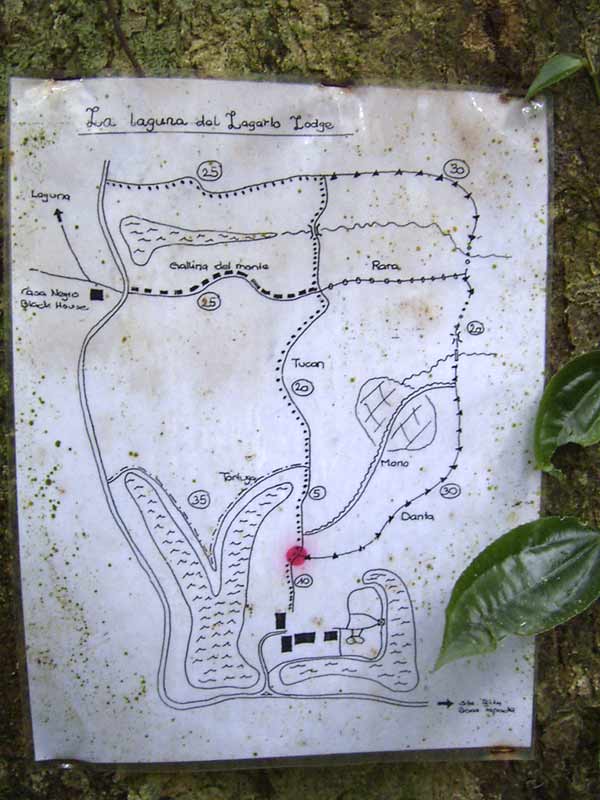 La laguna del Lagarto Lodge
25
30
Laguna
Gallina del monte
Rara
Casa Negro
Black House
25
20
Tucan
20
Tortuga
Mono
35
5
30
Danta
10
Boca Tapada